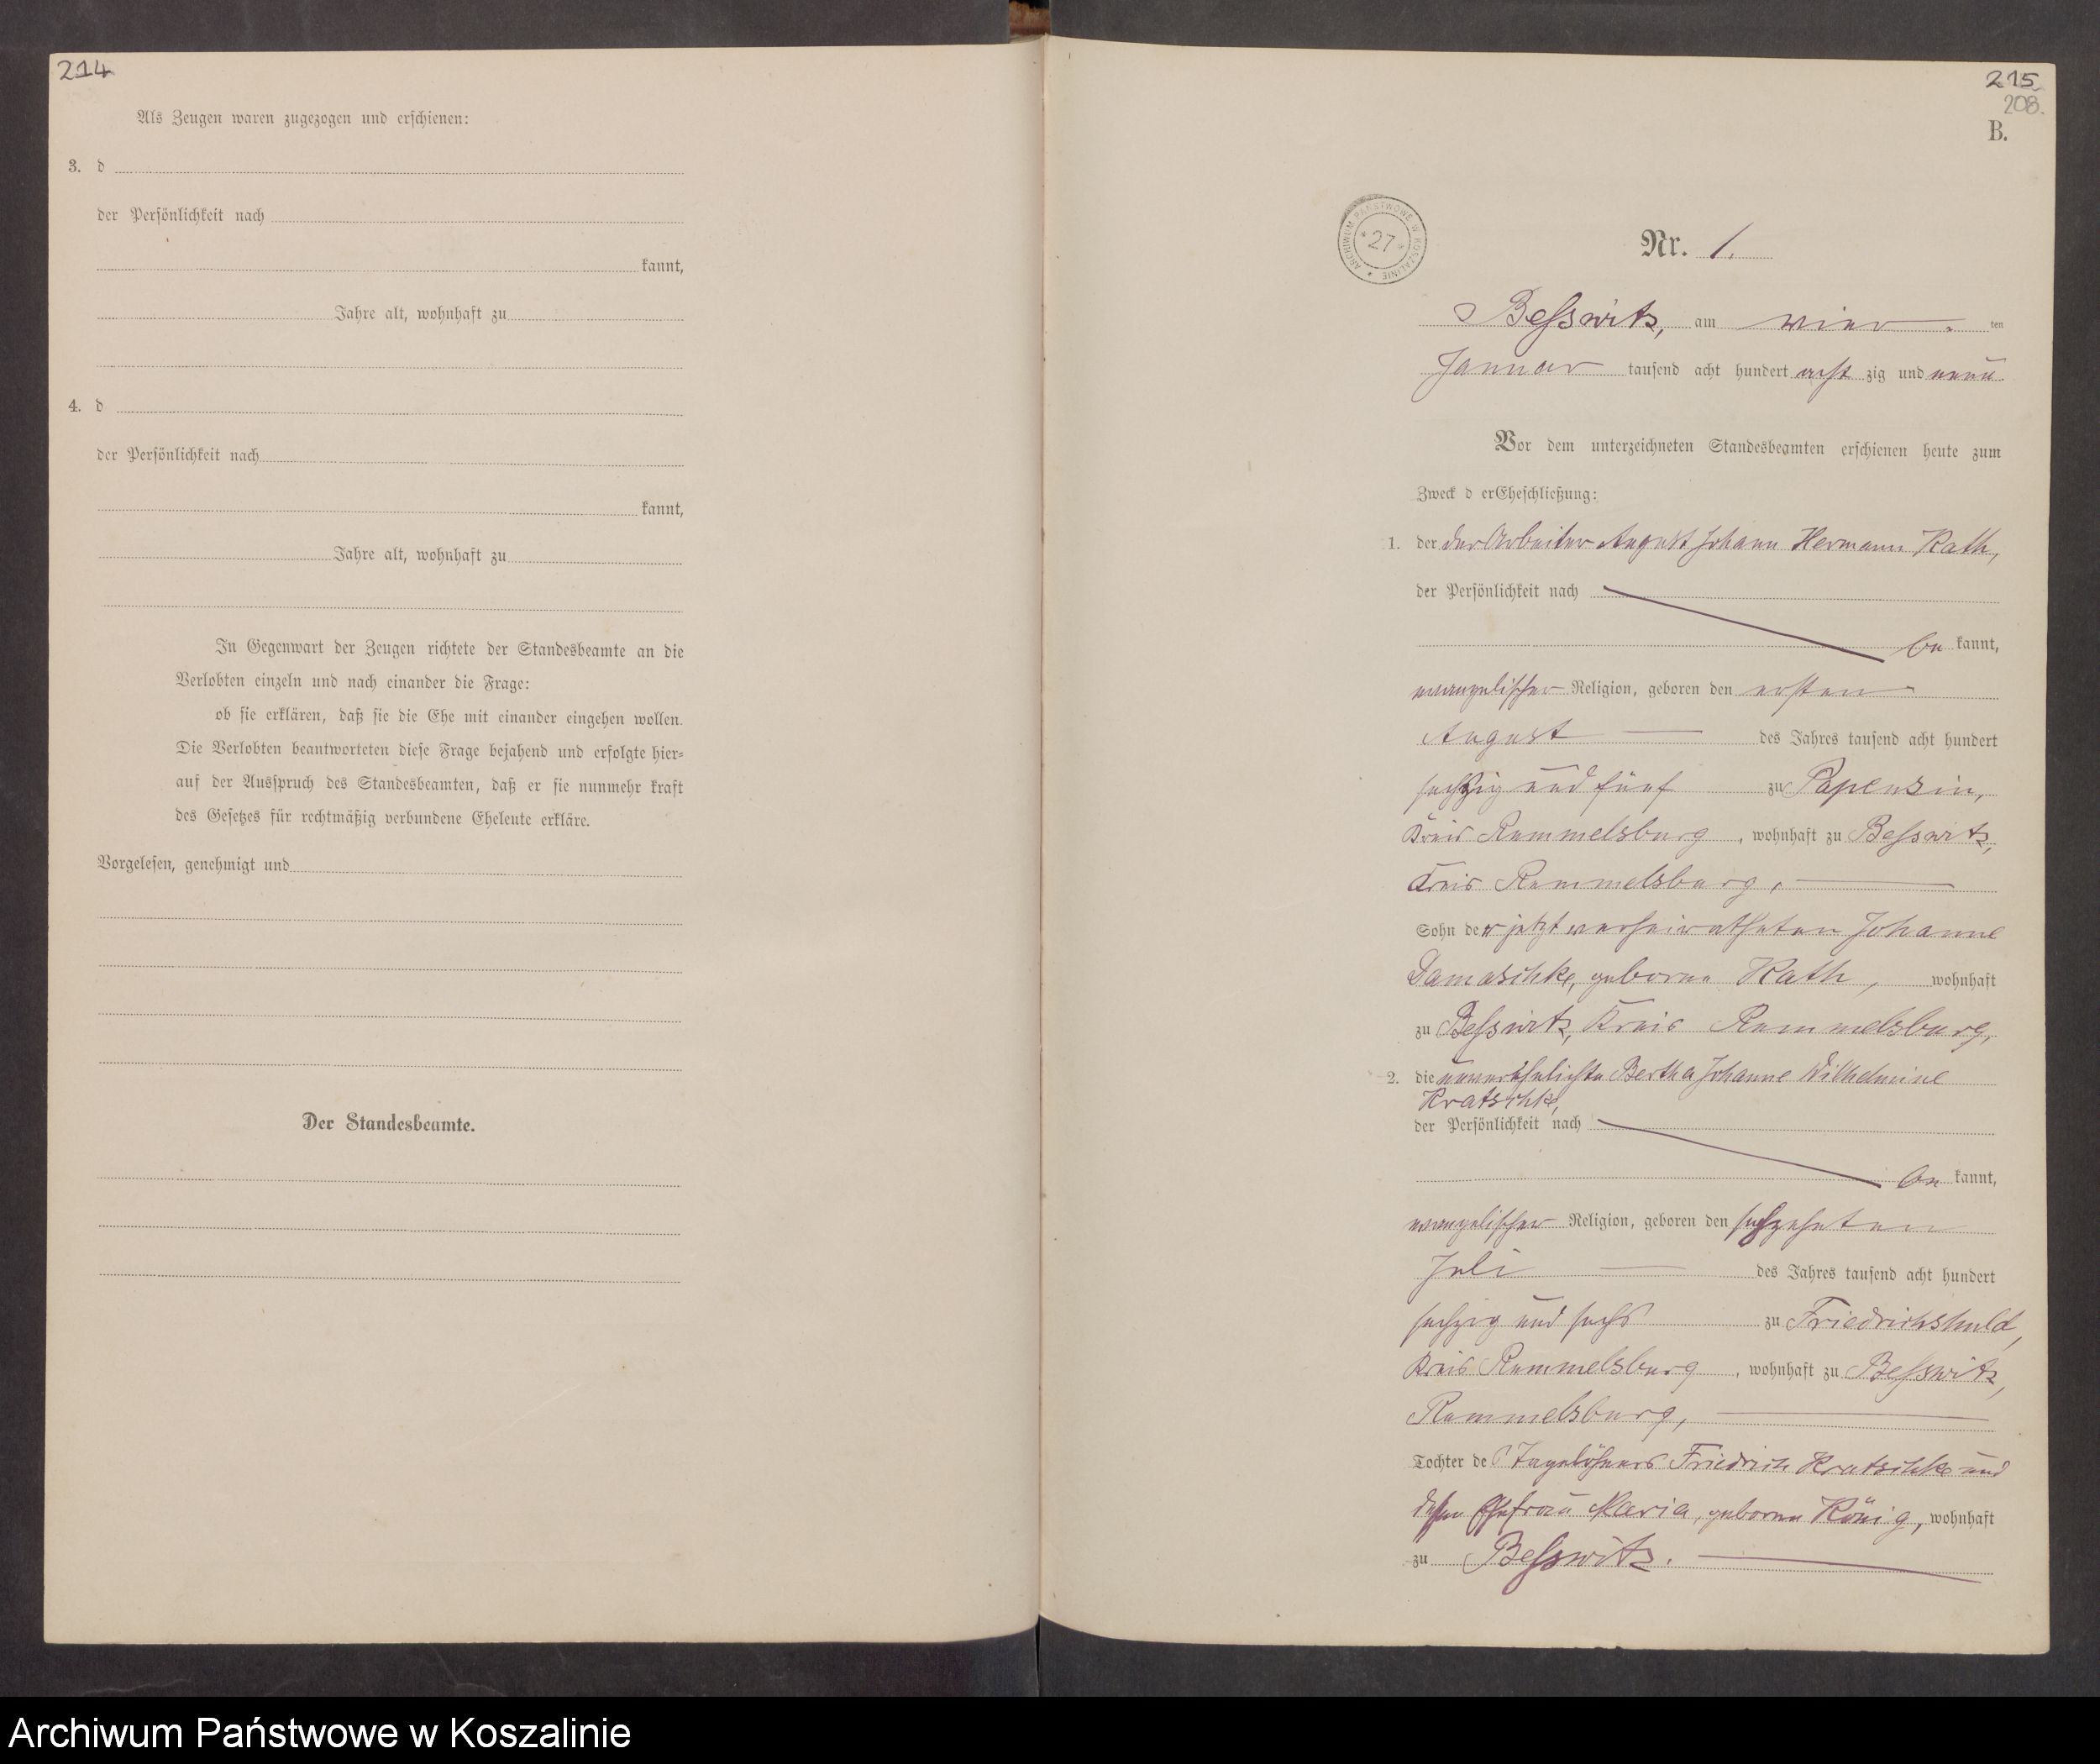 214
Als Zeugen waren zugezogen und erschienen:
3. d
der Persönlichkeit nach
kannt,
Jahre alt, wohnhaft zu
4. d
der Persönlichkeit nach
kannt,
Jahre alt, wohnhaft zu
In Gegenwart der Zeugen richtete der Standesbeamte an die
Verlobten einzeln und nach einander die Frage:
ob sie erklären, daß sie die Ehe mit einander eingehen wollen.
Die Verlobten beantworteten diese Frage bejahend und erfolgte hier-
auf der Ausspruch des Standesbeamten, daß er sie nunmehr kraft
des Gesetzes für rechtmäßig verbundene Eheleute erkläre.
Vorgelesen, genehmigt und
Der Standesbeamte.
215
208.
B.
ARCHIWUM PAŃSTWOWE W KOSZALINIE * 27 *
Nr. 1.
Besswitz, am vier ten
Januar tausend acht hundert acht zig und neun
Vor dem unterzeichneten Standesbeamten erschienen heute zum
Zweck d erEheschließung:
1. der der Arbeiter August Johann Hermann Rath,
der Persönlichkeit nach
be kannt,
evangelischer Religion, geboren den ersten
August des Jahres tausend acht hundert
sechzig und fünf zu Papenzin,
Kreis Rummelsburg, wohnhaft zu Besswitz,
Kreis Rummelsburg,
Sohn der jetzt verheiratheten Johanne
Damaschke, geborne Rath, wohnhaft
zu Besswitz, Kreis Rummelsburg,
2. die unverehelichte Bertha Johanne Wilhelmine
Kratschke,
der Persönlichkeit nach
be kannt,
evangelischer Religion, geboren den sechzehnten
Juli des Jahres tausend acht hundert
sechzig und sechs zu Friedrichshuld,
Kreis Rummelsburg, wohnhaft zu Besswitz,
Rummelsburg,
Tochter des Tagelöhners Friedrich Kratschke und
dessen Ehefrau Maria, geborne König, wohnhaft
zu Besswitz.
Archiwum Państwowe w Koszalinie